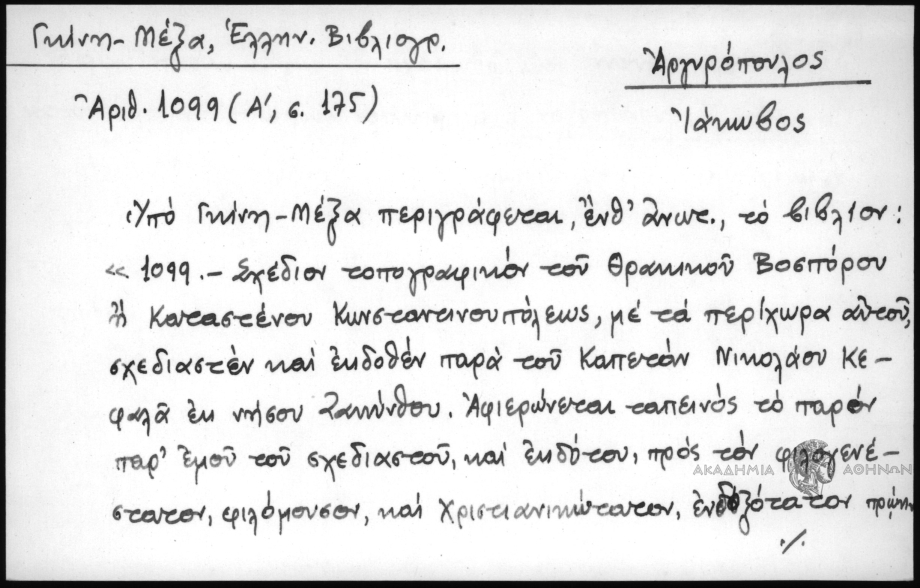 Γκίνη-Μέζα, Ἑλλην. Βιβλιογρ.
Ἀριθ. 1099 (Α', σ. 175)
Ἀργυρόπουλος
Ἰάκωβος
Ὑπό Γκίνη-Μέζα περιγράφεται, ἔνθ' ἀνωτ., τό βιβλίον:
«1099.- Σχέδιον τοπογραφικόν τοῦ Θρακικοῦ Βοσπόρου
ἤ Καταστένου Κωνσταντινουπόλεως, μέ τά περίχωρα αὐτοῦ,
σχεδιαστέν καί ἐκδοθέν παρά τοῦ Καπετάν Νικολάου Κε-
φαλᾶ ἐκ νήσου Ζακύνθου. Ἀφιερώνεται ταπεινός τό παρόν
παρ' ἐμοῦ τοῦ σχεδιαστοῦ, καί ἐκδότου, πρός τόν φιλογενέ-
στατον, φιλόμουσον, καί Χριστιανικώτατον, ἐνδοξότατον πρῴην
./.
ΑΚΑΔΗΜΙΑ ΑΘΗΝΩΝ